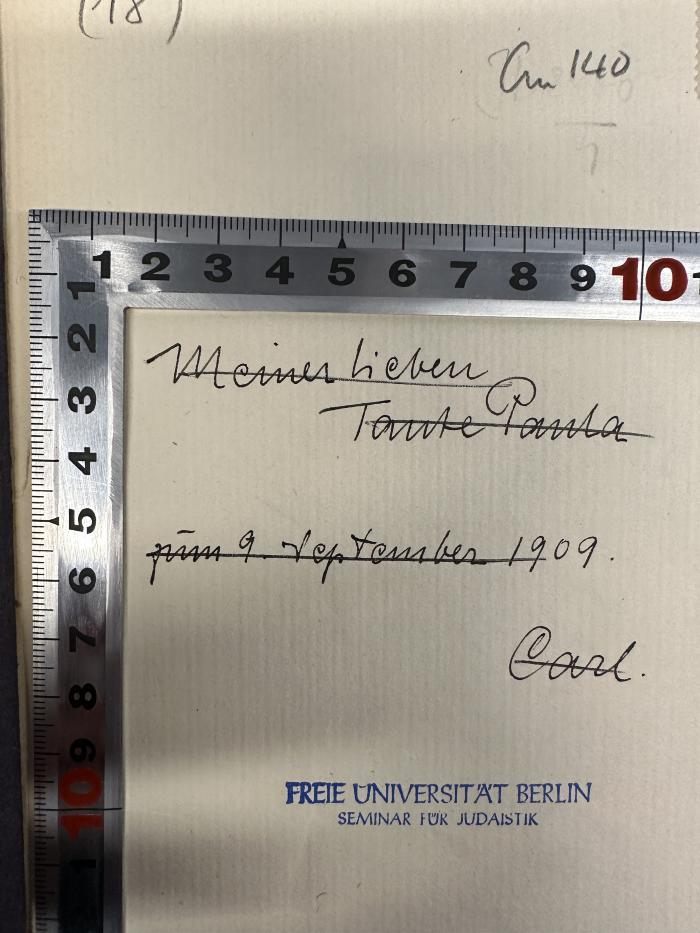 (18)
Cm 140
1 2 3 4 5 6 7 8 9 10
1 2 3 4 5 6 7 8 9 10
Meiner lieben
Tante Paula
zum 9. September 1909.
Carl.
FREIE UNIVERSITÄT BERLIN
SEMINAR FÜR JUDAISTIK